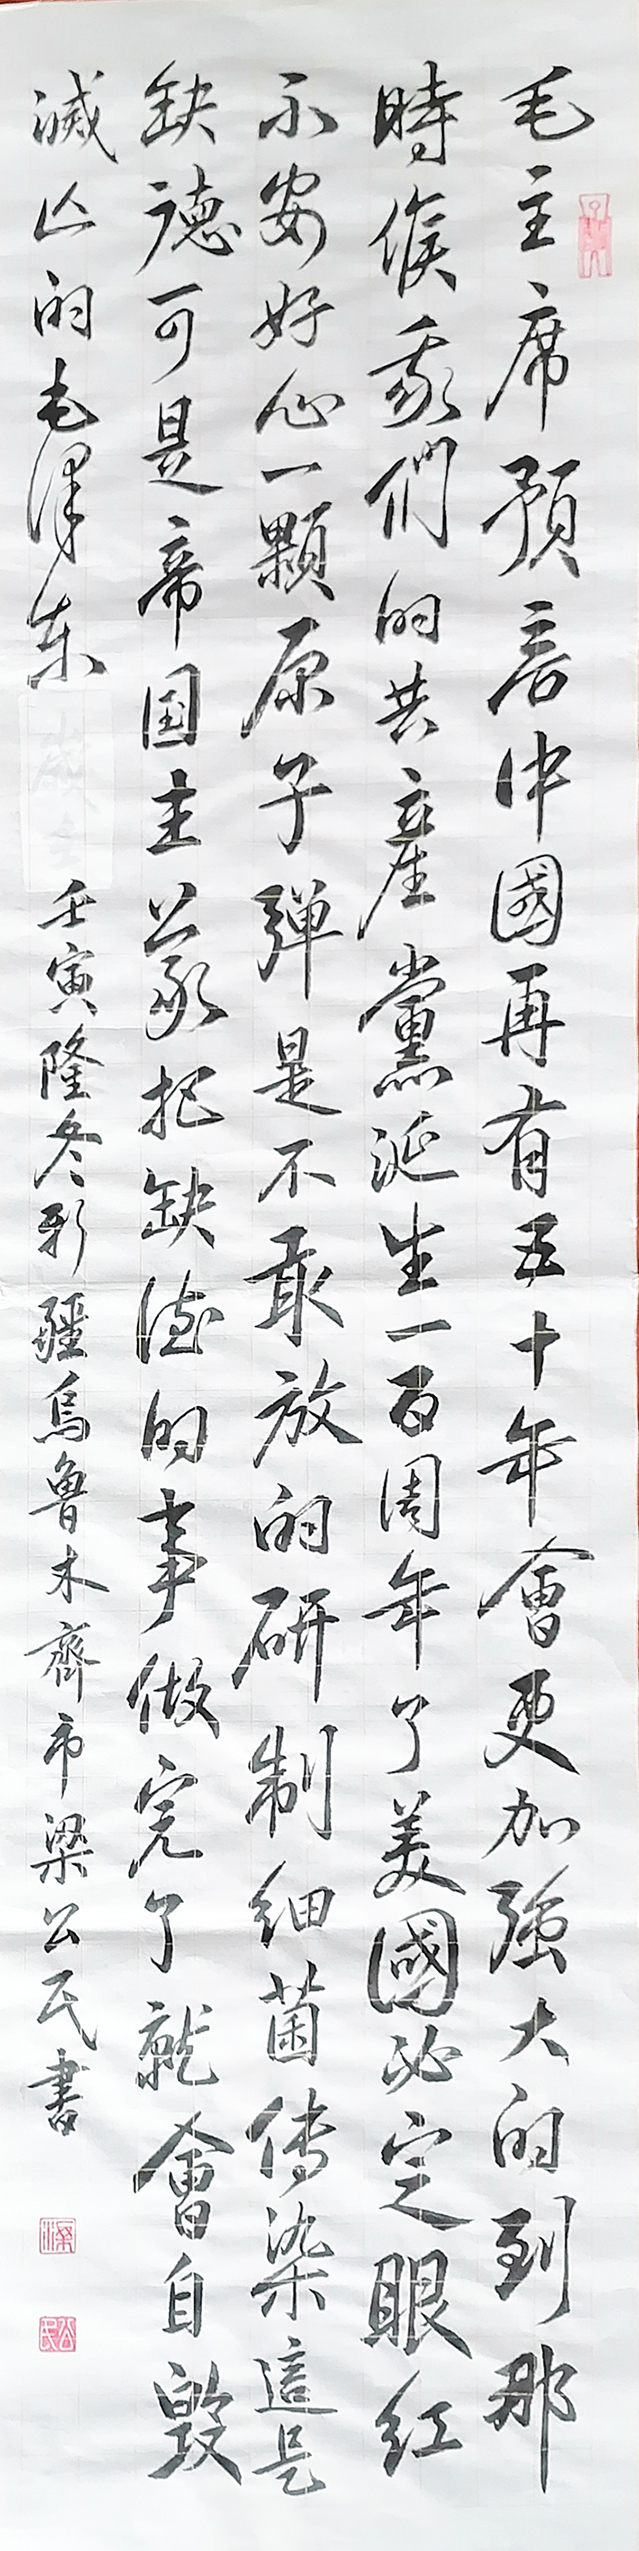 毛主席預言中國再有五十年會更加強大的到那
時候我們的共產黨誕生一百周年了美國必定眼紅
不安好心一顆原子彈是不敢放的研制細菌傳染這是
缺德可是帝国主義把缺德的事做完了就會自毀
滅亡的毛澤东
壬寅隆冬新疆烏魯木齊市梁公民書